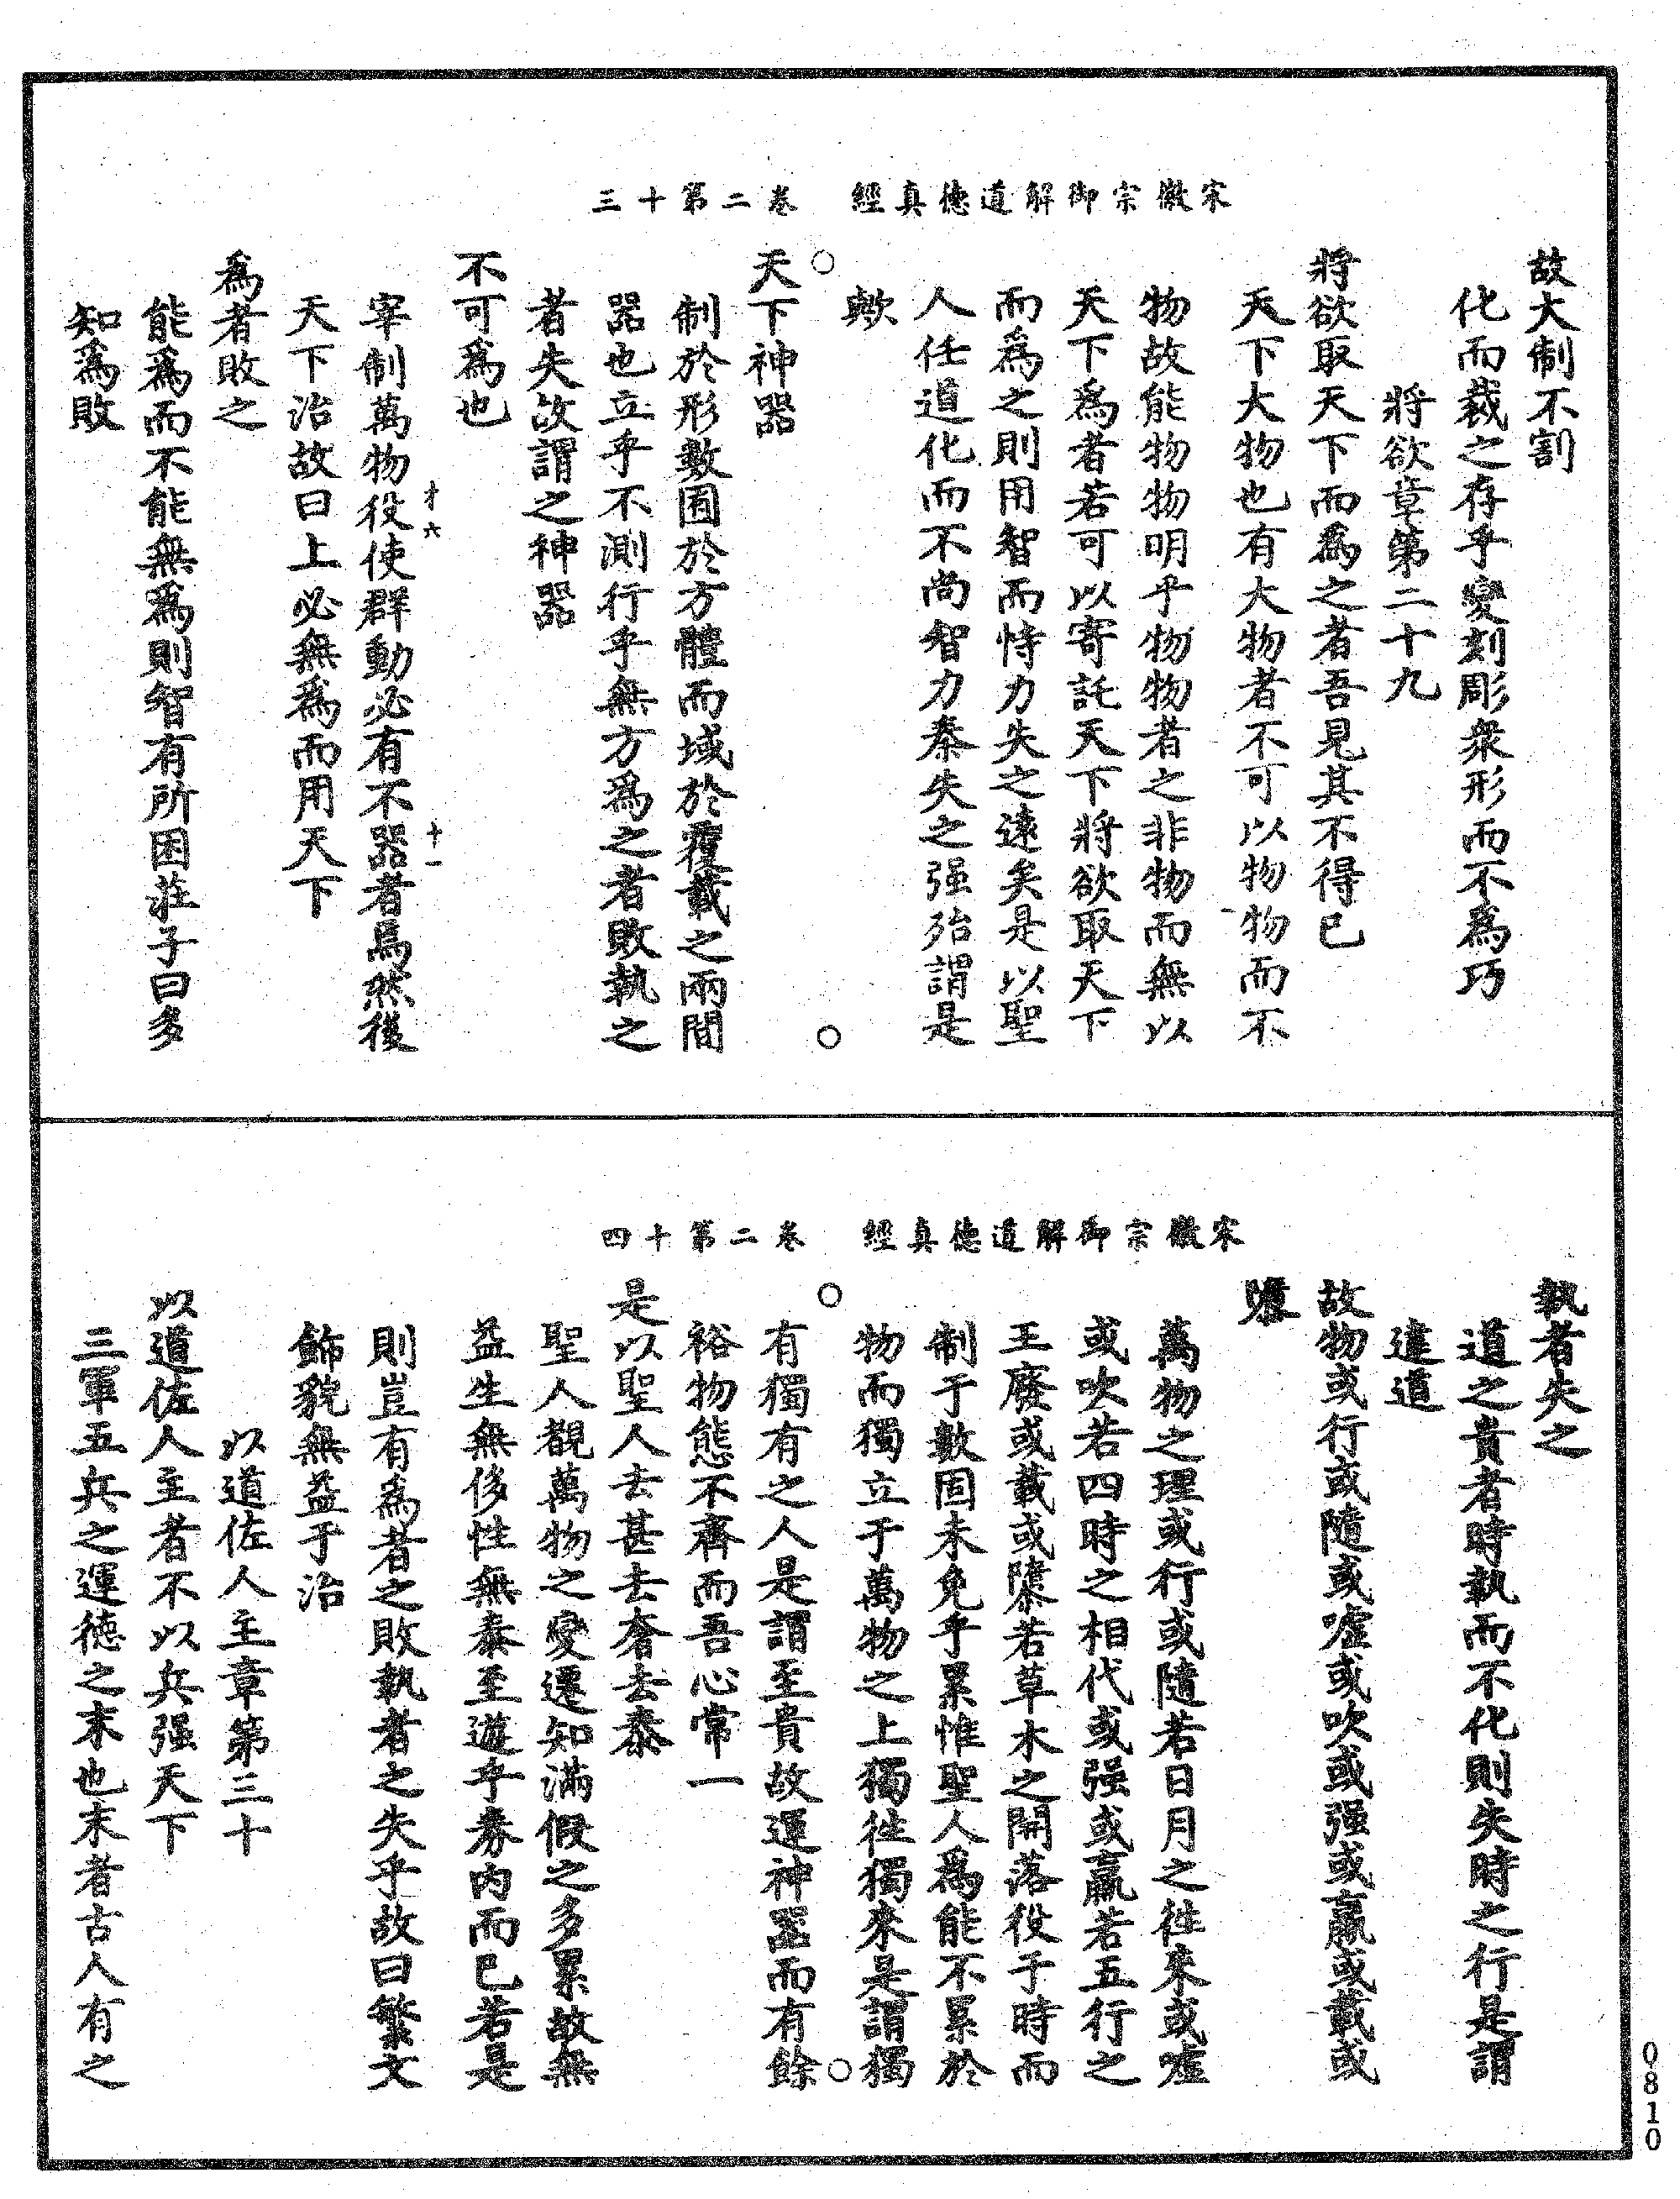 宋徽宗御解道德真經　卷二第十三
故大制不割
化而裁之存乎變刻彫衆形而不爲巧
將欲章第二十九
將欲取天下而爲之者吾見其不得已
天下大物也有大物者不可以物物而不
物故能物物明乎物物者之非物而無以
天下爲者若可以寄託天下將欲取天下
而爲之則用智而恃力失之遠矣是以聖
人任道化而不尚智力秦失之强殆謂是
歟
天下神器
制於形數囿於方體而域於覆載之兩間
器也立乎不測行乎無方爲之者敗執之
者失故謂之神器
不可爲也
宰制萬物役使群動必有不器者焉然後
才六　十一
天下治故曰上必無爲而用天下
爲者敗之
能爲而不能無爲則智有所困莊子曰多
知爲敗
宋徽宗御解道德真經　卷二第十四
執者失之
道之貴者時執而不化則失時之行是謂
違道
故物或行或隨或噓或吹或强或羸或載或
隳
萬物之理或行或隨若日月之往來或噓
或吹若四時之相代或强或羸若五行之
王廢或載或隳若草木之開落役于時而
制于數固未免乎累惟聖人爲能不累於
物而獨立于萬物之上獨往獨來是謂獨
有獨有之人是謂至貴故運神器而有餘
裕物態不齊而吾心常一
是以聖人去甚去奢去泰
聖人覩萬物之變遷知滿假之多累故無
益生無侈性無泰至遊乎券內而已若是
則豈有爲者之敗執者之失乎故曰繁文
飾貌無益于治
以道佐人主章第三十
以道佐人主者不以兵强天下
三軍五兵之運德之末也末者古人有之
0810